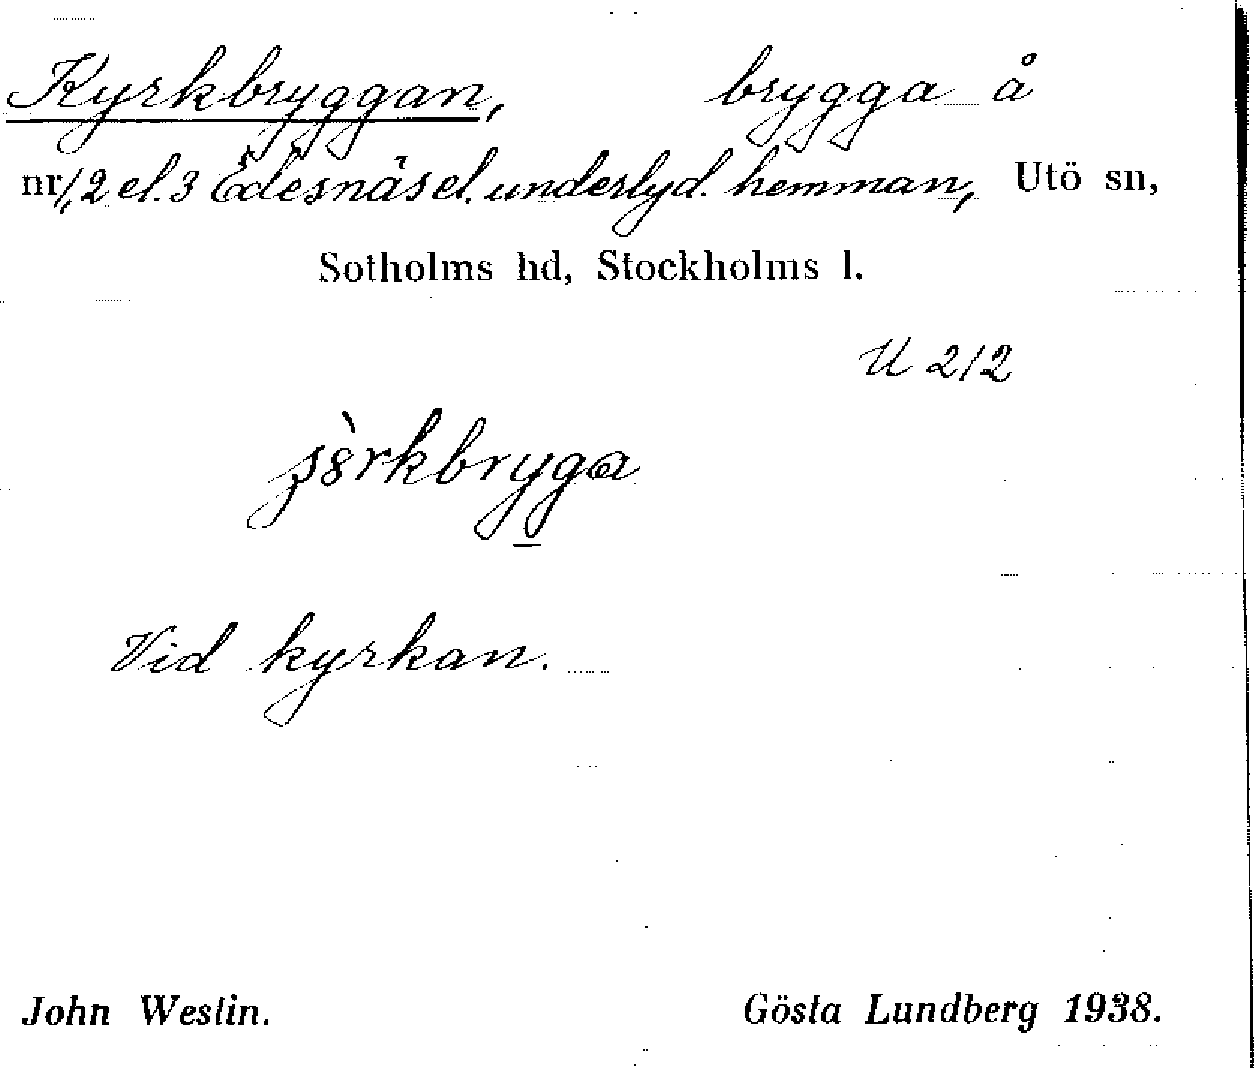 Kyrkbryggan, brygga å
nr 1, 2 el. 3 Edesnäs el. underlyd. hemman, Utö sn,
Sotholms hd, Stockholms l.
U 212
Vid kyrkan.
John Westin. Gösta Lundberg 1938.